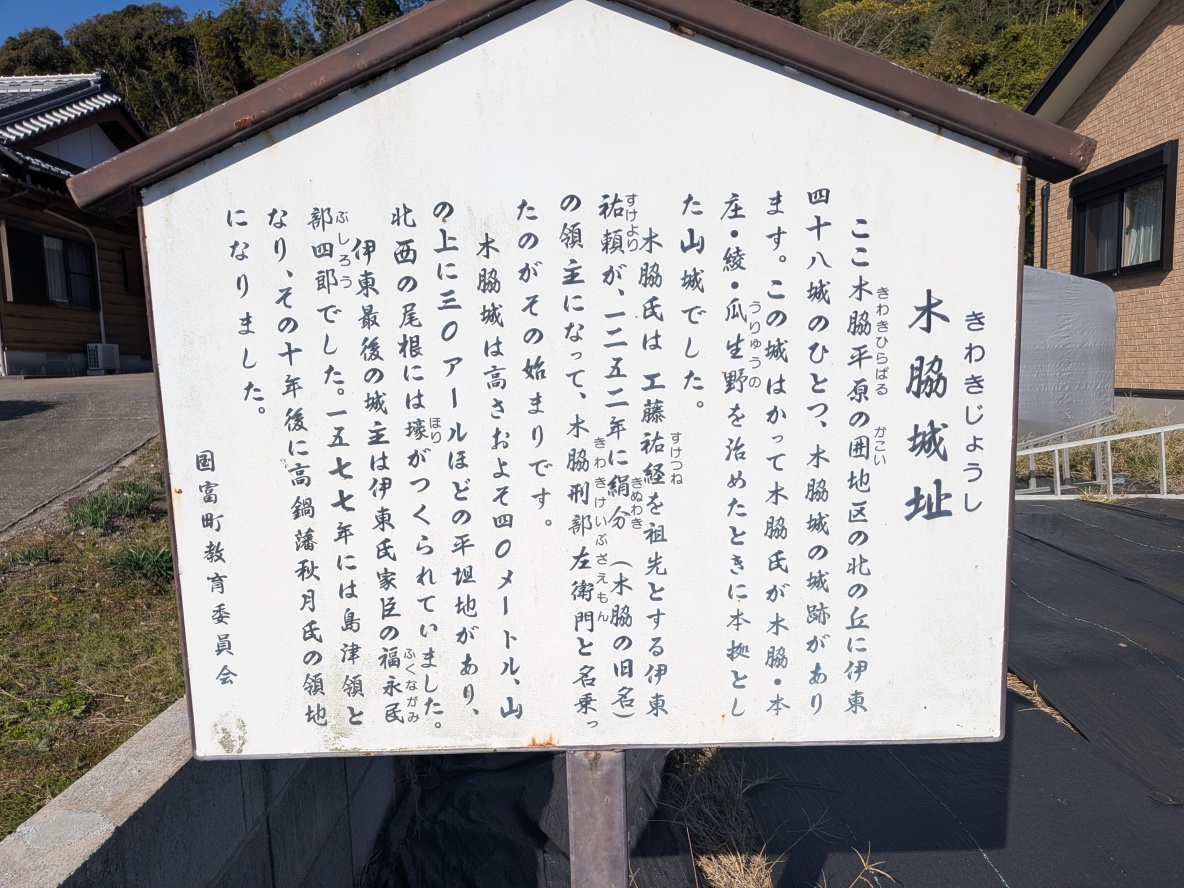 きわきじょうし
木脇城址
きわきひらばる　かこい
ここ木脇平原の囲地区の北の丘に伊東
四十八城のひとつ、木脇城の城跡があり
ます。この城はかって木脇氏が木脇・本
うりゅうの
庄・綾・瓜生野を治めたときに本拠とし
た山城でした。
すけつね
木脇氏は工藤祐経を祖先とする伊東
すけより　きぬわき
祐頼が、一二五二年に絹分（木脇の旧名）
きわきけいぶざえもん
の領主になって、木脇刑部左衛門と名乗っ
たのがその始まりです。
木脇城は高さおよそ四〇メートル、山
の上に三〇アールほどの平坦地があり、
ほり
北西の尾根には壕がつくられていました。
ふくながみ
伊東最後の城主は伊東氏家臣の福永民
ぶしろう
部四郎でした。一五七七年には島津領と
なり、その十年後に高鍋藩秋月氏の領地
になりました。
国富町教育委員会